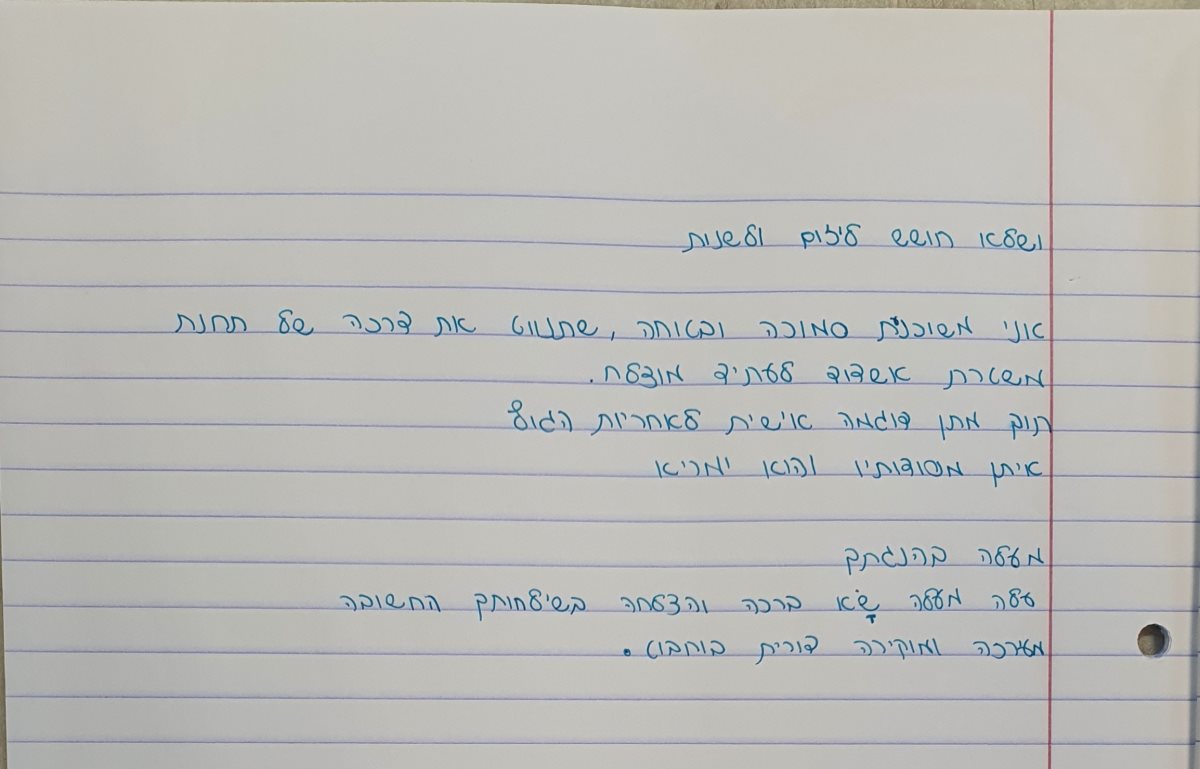 ושלא חושש ליזום ולשנות
אני משוכנעת סמוכה ובטוחה, שתנווט את דרכה של תחנת
משטרת אשדוד לעתיד מוצלח.
תוך מתן דוגמה אישית לאחריות הגוף
איתן מיסודותיו והוא ימריא
מעלה בהנגתך
עלה מעלה שָׂא ברכה והצלחה בשליחותך החשובה
מעריכה ומוקירה דורית בוחבוט.